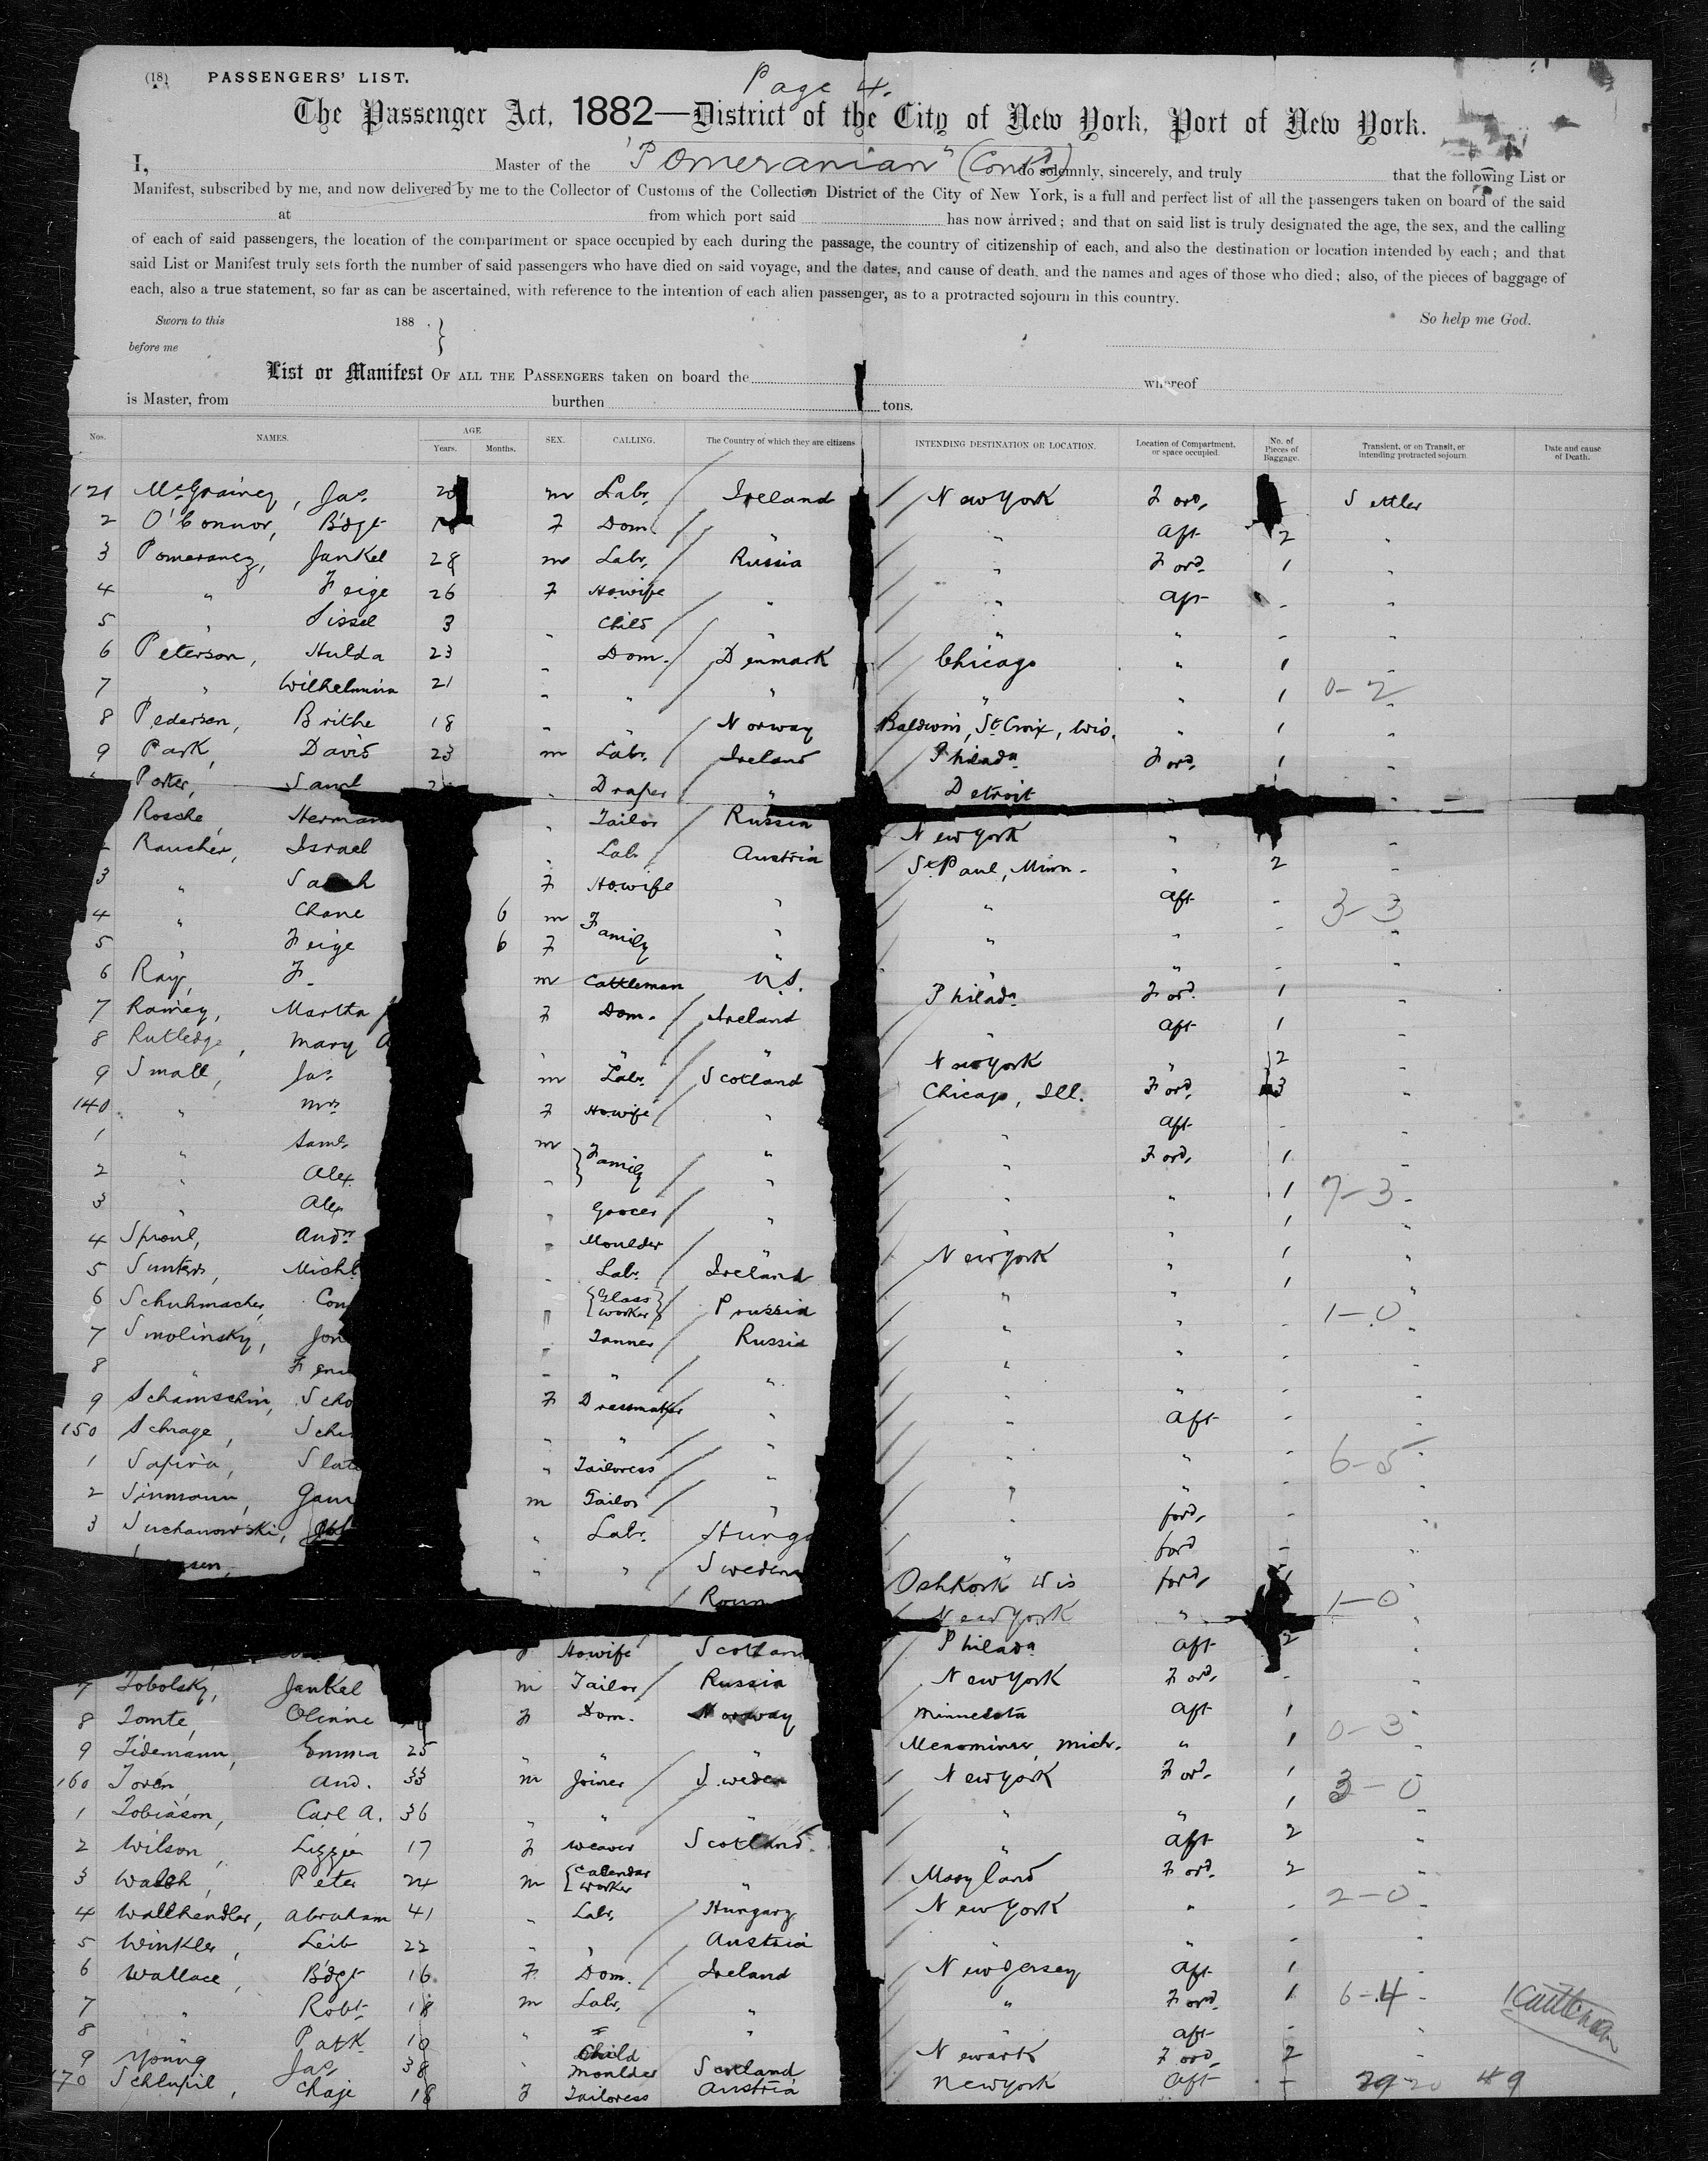 (18) PASSENGERS' LIST.
Page 4.
The Passenger Act, 1882—District of the City of New York, Port of New York.
I, Master of the "Pomeranian" (Contd) do solemnly, sincerely, and truly that the following List or
Manifest, subscribed by me, and now delivered by me to the Collector of Customs of the Collection District of the City of New York, is a full and perfect list of all the passengers taken on board of the said
at from which port said has now arrived; and that on said list is truly designated the age, the sex, and the calling
of each of said passengers, the location of the compartment or space occupied by each during the passage, the country of citizenship of each, and also the destination or location intended by each; and that
said List or Manifest truly sets forth the number of said passengers who have died on said voyage, and the dates, and cause of death, and the names and ages of those who died; also, of the pieces of baggage of
each, also a true statement, so far as can be ascertained, with reference to the intention of each alien passenger, as to a protracted sojourn in this country.
Sworn to this 188 . } So help me God.
before me
List or Manifest OF ALL THE PASSENGERS taken on board the whereof
is Master, from burthen tons.
Nos. NAMES. AGE Years. Months. SEX. CALLING. The Country of which they are citizens INTENDING DESTINATION OR LOCATION. Location of Compartment, or space occupied. No. of Pieces of Baggage. Transient, or on Transit, or intending protracted sojourn Date and cause of Death.
121 Jas. 20 m Labr. / Ireland / New York Ford. Settler
2 O'Connor, Bdgt F Dom / " / " Aft 2 "
3 Pomeranez, Jankel 28 m Labr. / Russia / " Ford. 1 "
4 " Feige 26 F Howife / " / " Aft - "
5 " Sissel 3 " Child / " / " " - "
6 Peterson, Hulda 23 " Dom. / Denmark / Chicago " 1 "
7 " Wilhelmina 21 " " / " / " " 1 0-2
8 Pedersen, Brithe 18 " " / Norway / Baldwin, St Croix, Wis. " 1 "
9 Park, David 23 m Labr. / Ireland / Philada Ford. 1 "
Porter, Saml " Draper / " / Detroit "
Rosche, Herman " Tailor / Russia / New York " "
Raucher, Israel " Lab / Austria / St. Paul, Minn. " 2 "
3 " Sarah F Howife " / " Aft - 3-3
4 " Chane 6 m Family " / " " - "
5 " Feige 6 F " / " " - "
6 Ray, F. m Cattleman U.S. Philada Ford. 1 "
7 Ramey, Martha F Dom. / Ireland / " Aft 1 "
8 Rutledge, Mary A " " / " / New York " 2 "
9 Small, Jas. m Labr. / Scotland / Chicago, Ill. Ford. 3 "
140 " Mrs F Howife / " / " Aft - "
1 " Saml. m } Family " / " Ford. 1 "
2 " Alex. " / " / " " 1 7-3
3 " Alex " Grocer / " / " " 1 "
4 Sproul, Andw " Moulder / " / New York " 1 "
5 Michl " Labr. / Ireland / " " 1 "
6 Schuhmacher, " {Glass worker} / Prussia / " " - 1-0
7 Smolinsky, " Tanner / Russia / " " - "
8 " " " / " / " " - "
9 F Dressmaker / " / " Aft - "
150 Schrage, " " / " / " " - 6-5
1 Sapira, " Tailoress / " / " " - "
2 m Tailor / " / " ford. - "
3 Suchanowski, " Labr. / / " ford - "
" " / Sweden / Oshkosh Wis ford. 1-0
/ / New York " "
Howife Philada Aft 2 "
7 Tobolsky, Jankel m Tailor / Russia / New York Ford. - "
8 Tomte, Olinne F Dom. Norway / Minnesota Aft 1 "
9 Tidemann, Emma 25 " " / " / Menominee, Mich. " 1 0-3
160 Toren, And. 33 m Joiner / Sweden / New York Ford. 1 "
1 Tobiason, Carl A. 36 " " / " / " " 1 3-0
2 Wilson, Lizzie 17 F Weaver / Scotland / " Aft 2 "
3 Walsh, Peter 24 m {Calendar worker " / Maryland Ford. 2 "
4 Wallhendler, Abraham 41 " Labr. / Hungary / New York " - 2-0
5 Winkler, Leib 22 " " / Austria / " " - "
6 Wallace, Bdgt 16 F Dom. / Ireland / New Jersey Aft 1 "
7 " Robt 18 m Labr. / " / " Ford. 1 6-4
8 " Patk 10 " Child " / " Aft - "
9 Young Jas. 38 " Moulder Scotland / Newark Ford. 2 "
170 Schlupil, Chaje 18 F Tailoress Austria / New York Aft - 29-20 49
1 Cattleman